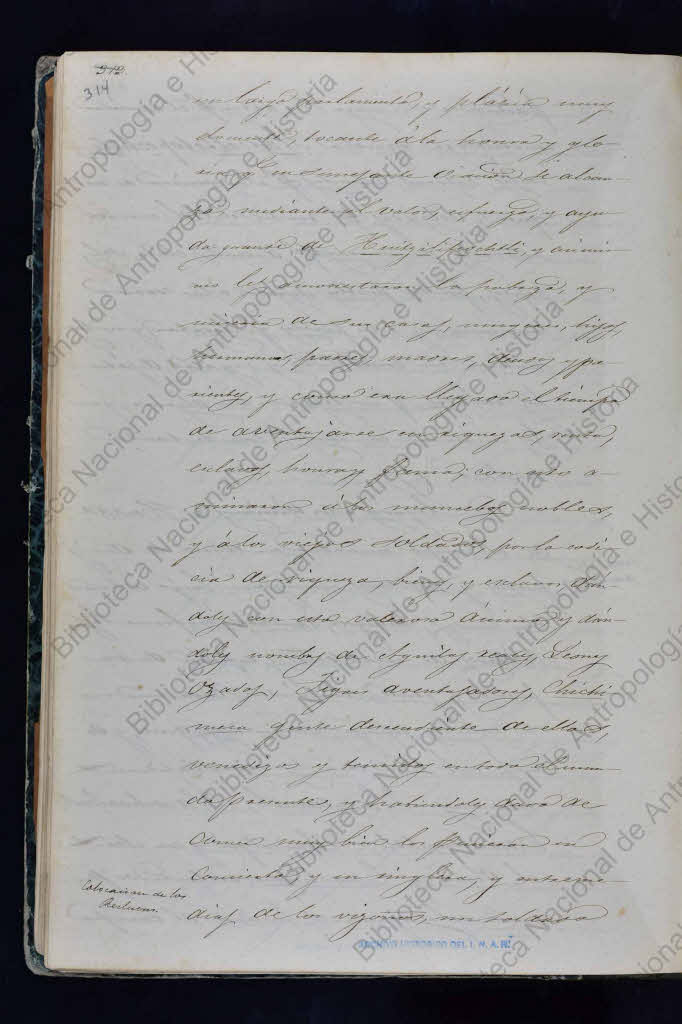 312
314
un largo parlamento, y plática muy
elocuente, tocante á la honra y glo-
ria, q.e en semejante ocasion se alcan-
za, mediante el valor, esfuerzo, y ayu-
da grande de Huitzilopochtli, y asimis-
mo les amonestaron la pobreza, y
miseria de sus casas, mugeres, hijos,
hermanos, padres, madres, deudos y pa-
rientes, y como era llegado el tiempo
de aventajarse en riquezas, renta,
esclavos, honra y fama; con esto a-
nimaron á los mancebos nobles,
y á los viejos soldados, por la codi-
cia de riqueza, bienes, y esclavos dan-
doles con esta valerosa ánimo, y dán-
doles nombres de Aguilas reales, Leones
Ozados, Tigres aventajadores, Chichi-
meca gente descendiente de ellos,
venediza y temidos en todo el mun-
do presente, y habiendoles dado de
comer muy bien los pusieron en
concierto, y en ringlera, y entreme-
dias de los vizoños, un soldado
Colocacion de los
Reclutas.
ARCHIVO HISTORICO DEL I. N. A. H.
Biblioteca Nacional de Antropología e Historia